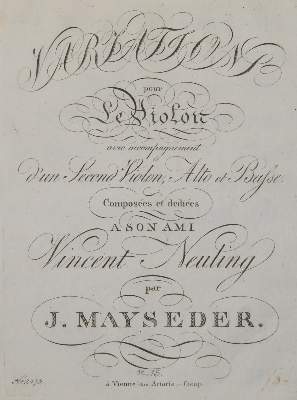 VARIATIONS
pour
Le Violon
avec accompagnement
d'un Second Violon, Alto et Basse.
Composées et dediées
A SON AMI
Vincent Neuling
par
J. MAYSEDER.
à Vienne chez Artaria et Comp.